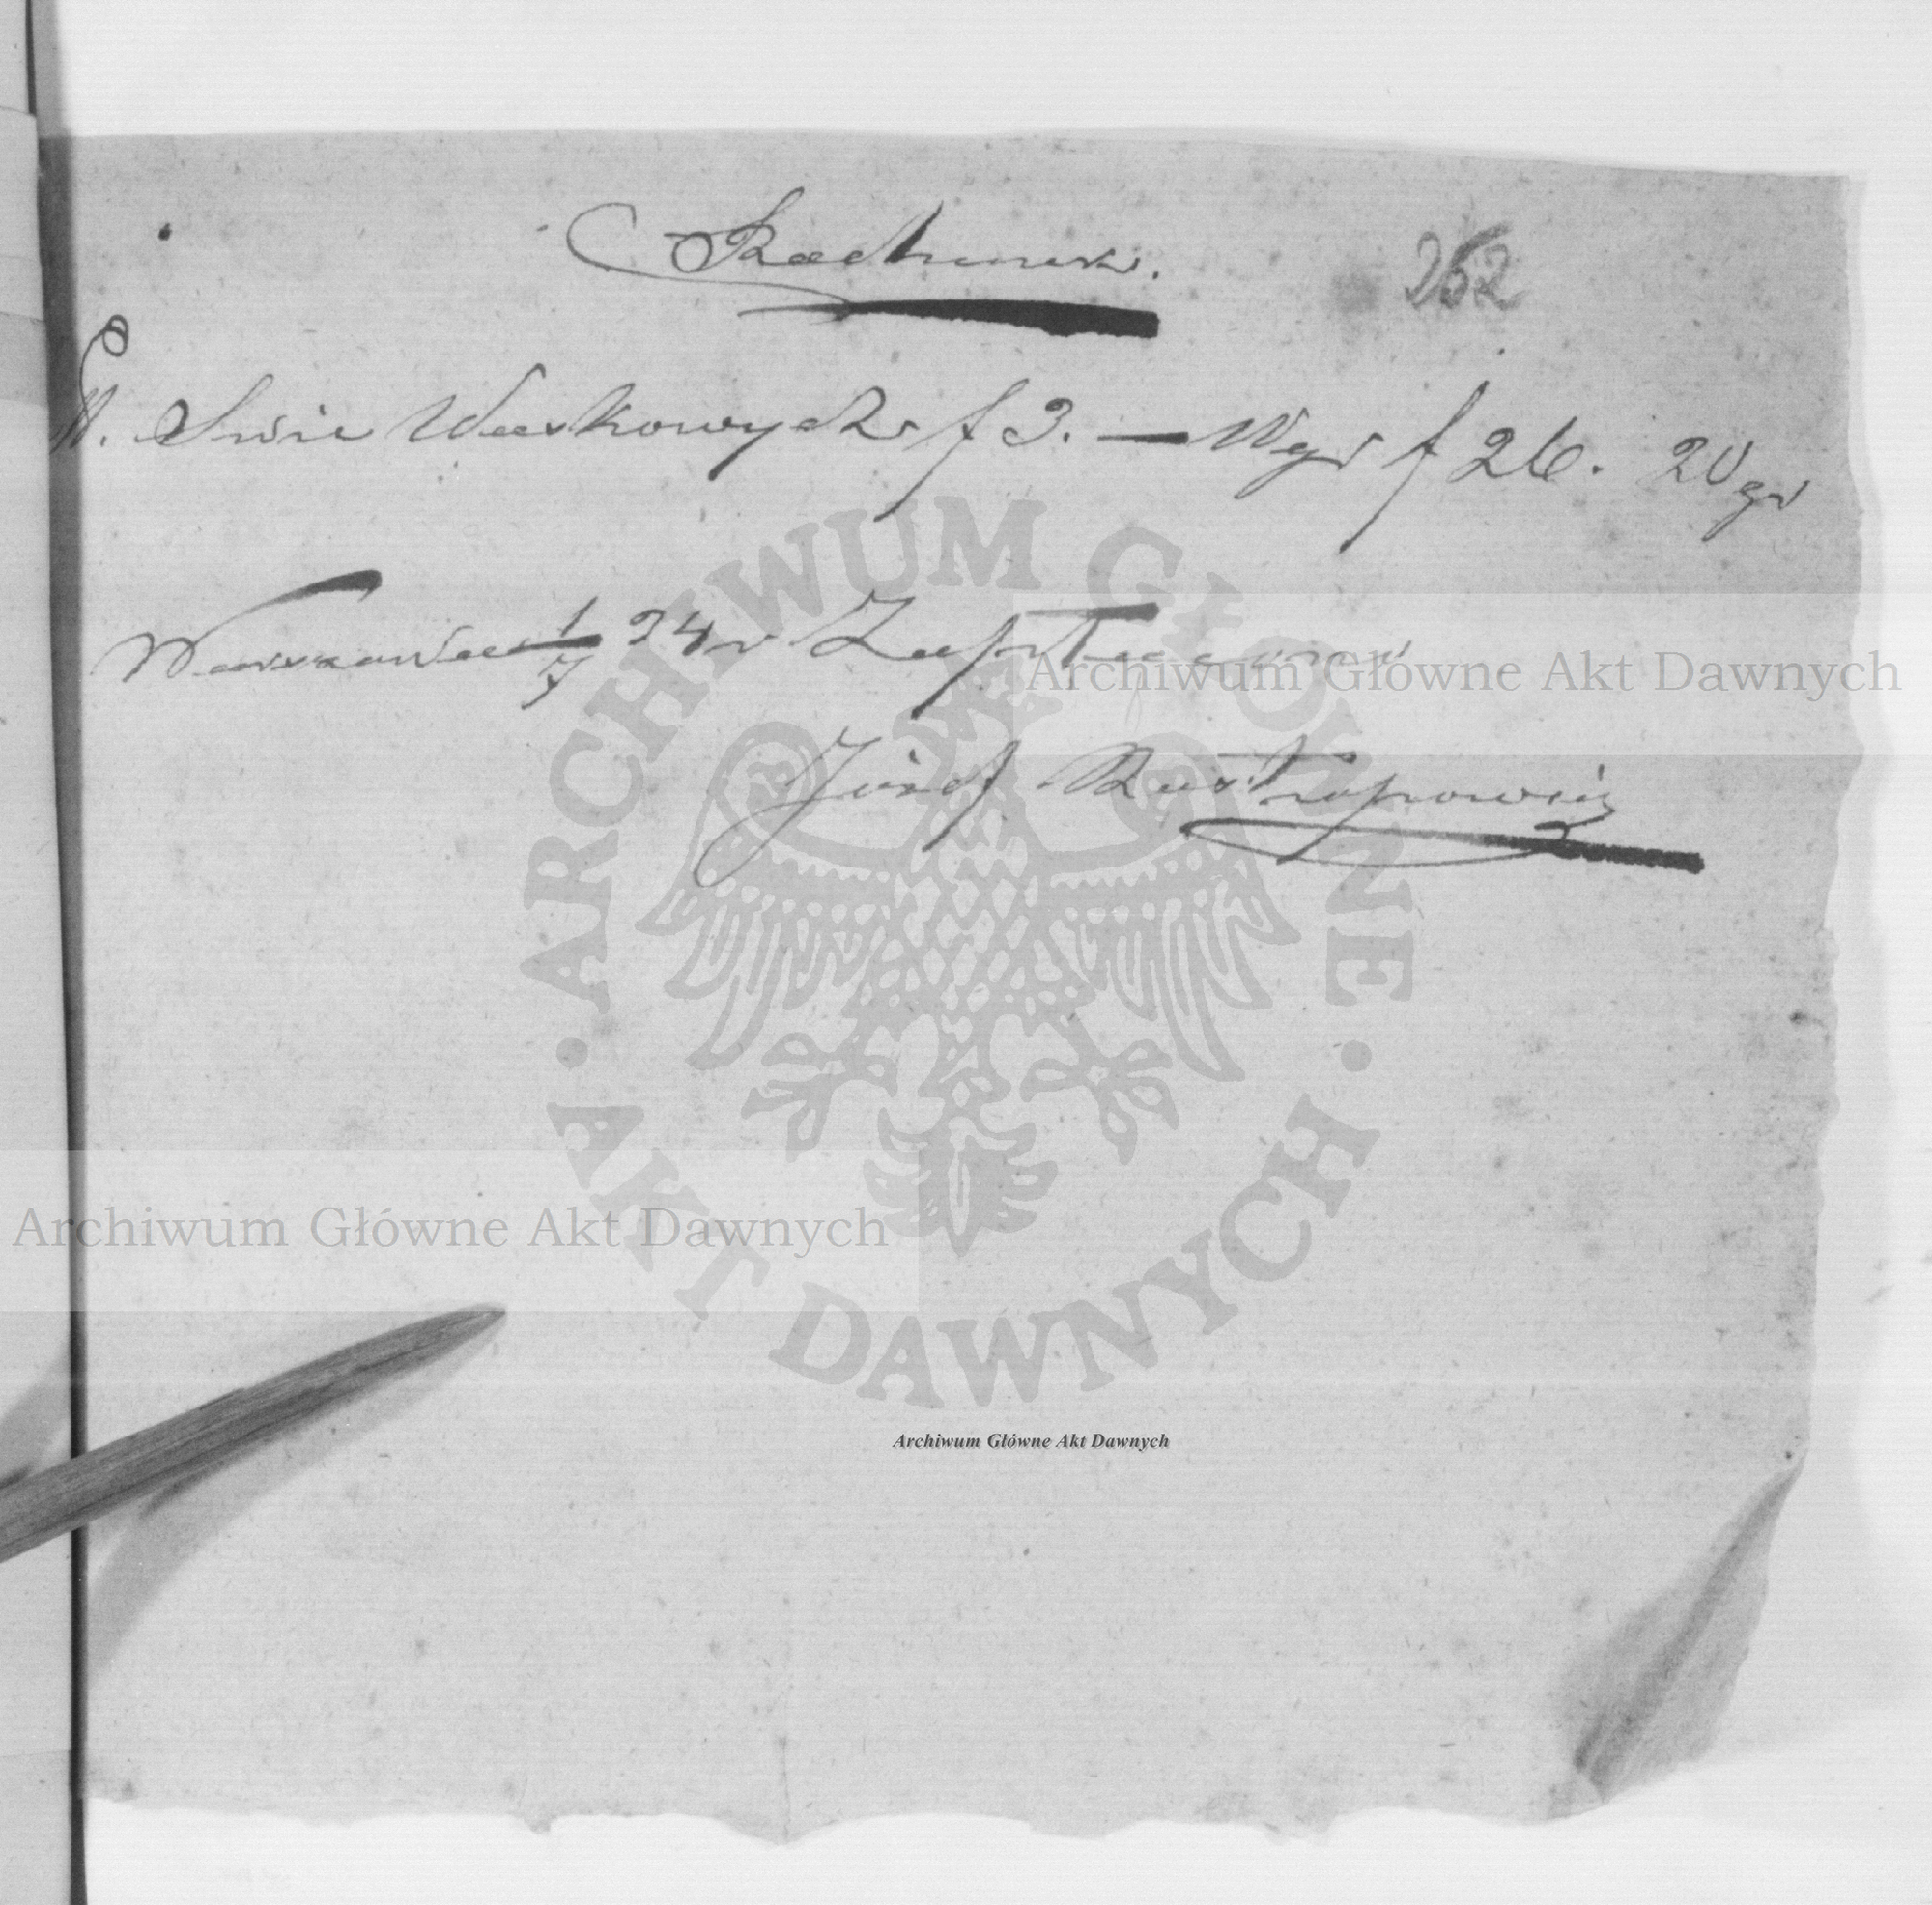 Rachunek.
262
Świe Woskowych f 3. — Wgr f 26. 20 gr
Warszawa 1/7 24 r Zapłacono
Józef Rostropowicz
ARCHIWUM GŁÓWNE · AKT DAWNYCH ·
Archiwum Główne Akt Dawnych
Archiwum Główne Akt Dawnych
Archiwum Główne Akt Dawnych